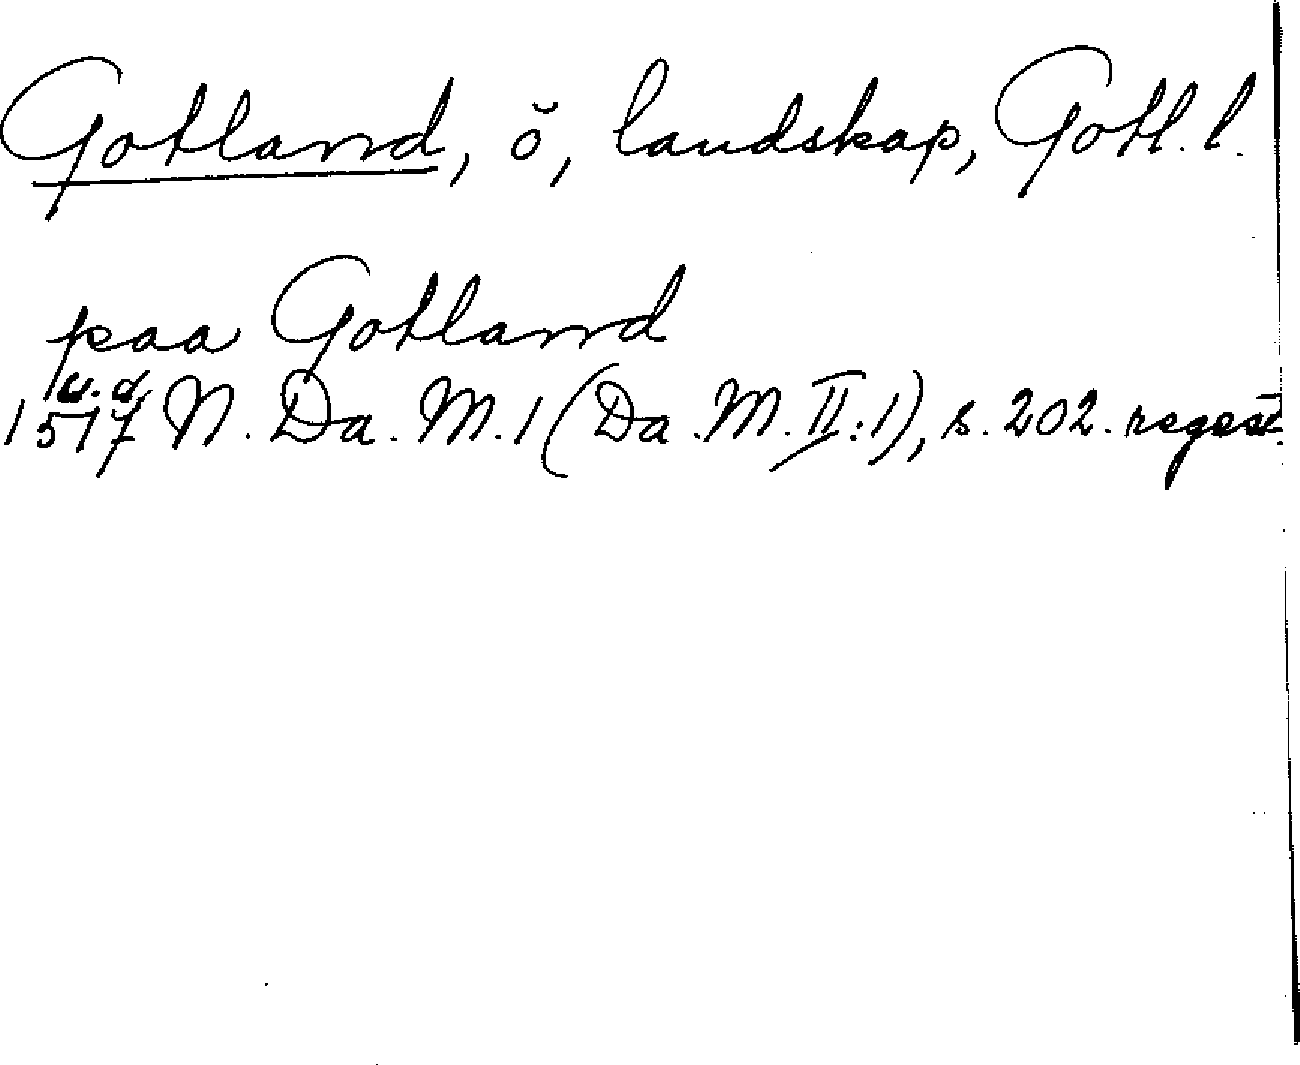 Gotland, ö, landskap, Gotl. l.
paa Gotland
u.d.
1517 N. Da. M. 1 (Da. M. II:1), s. 202. regest.